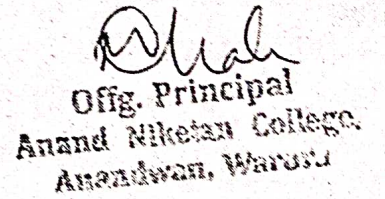 Offg. Principal
Anand Niketan College,
Anandwan, Warora